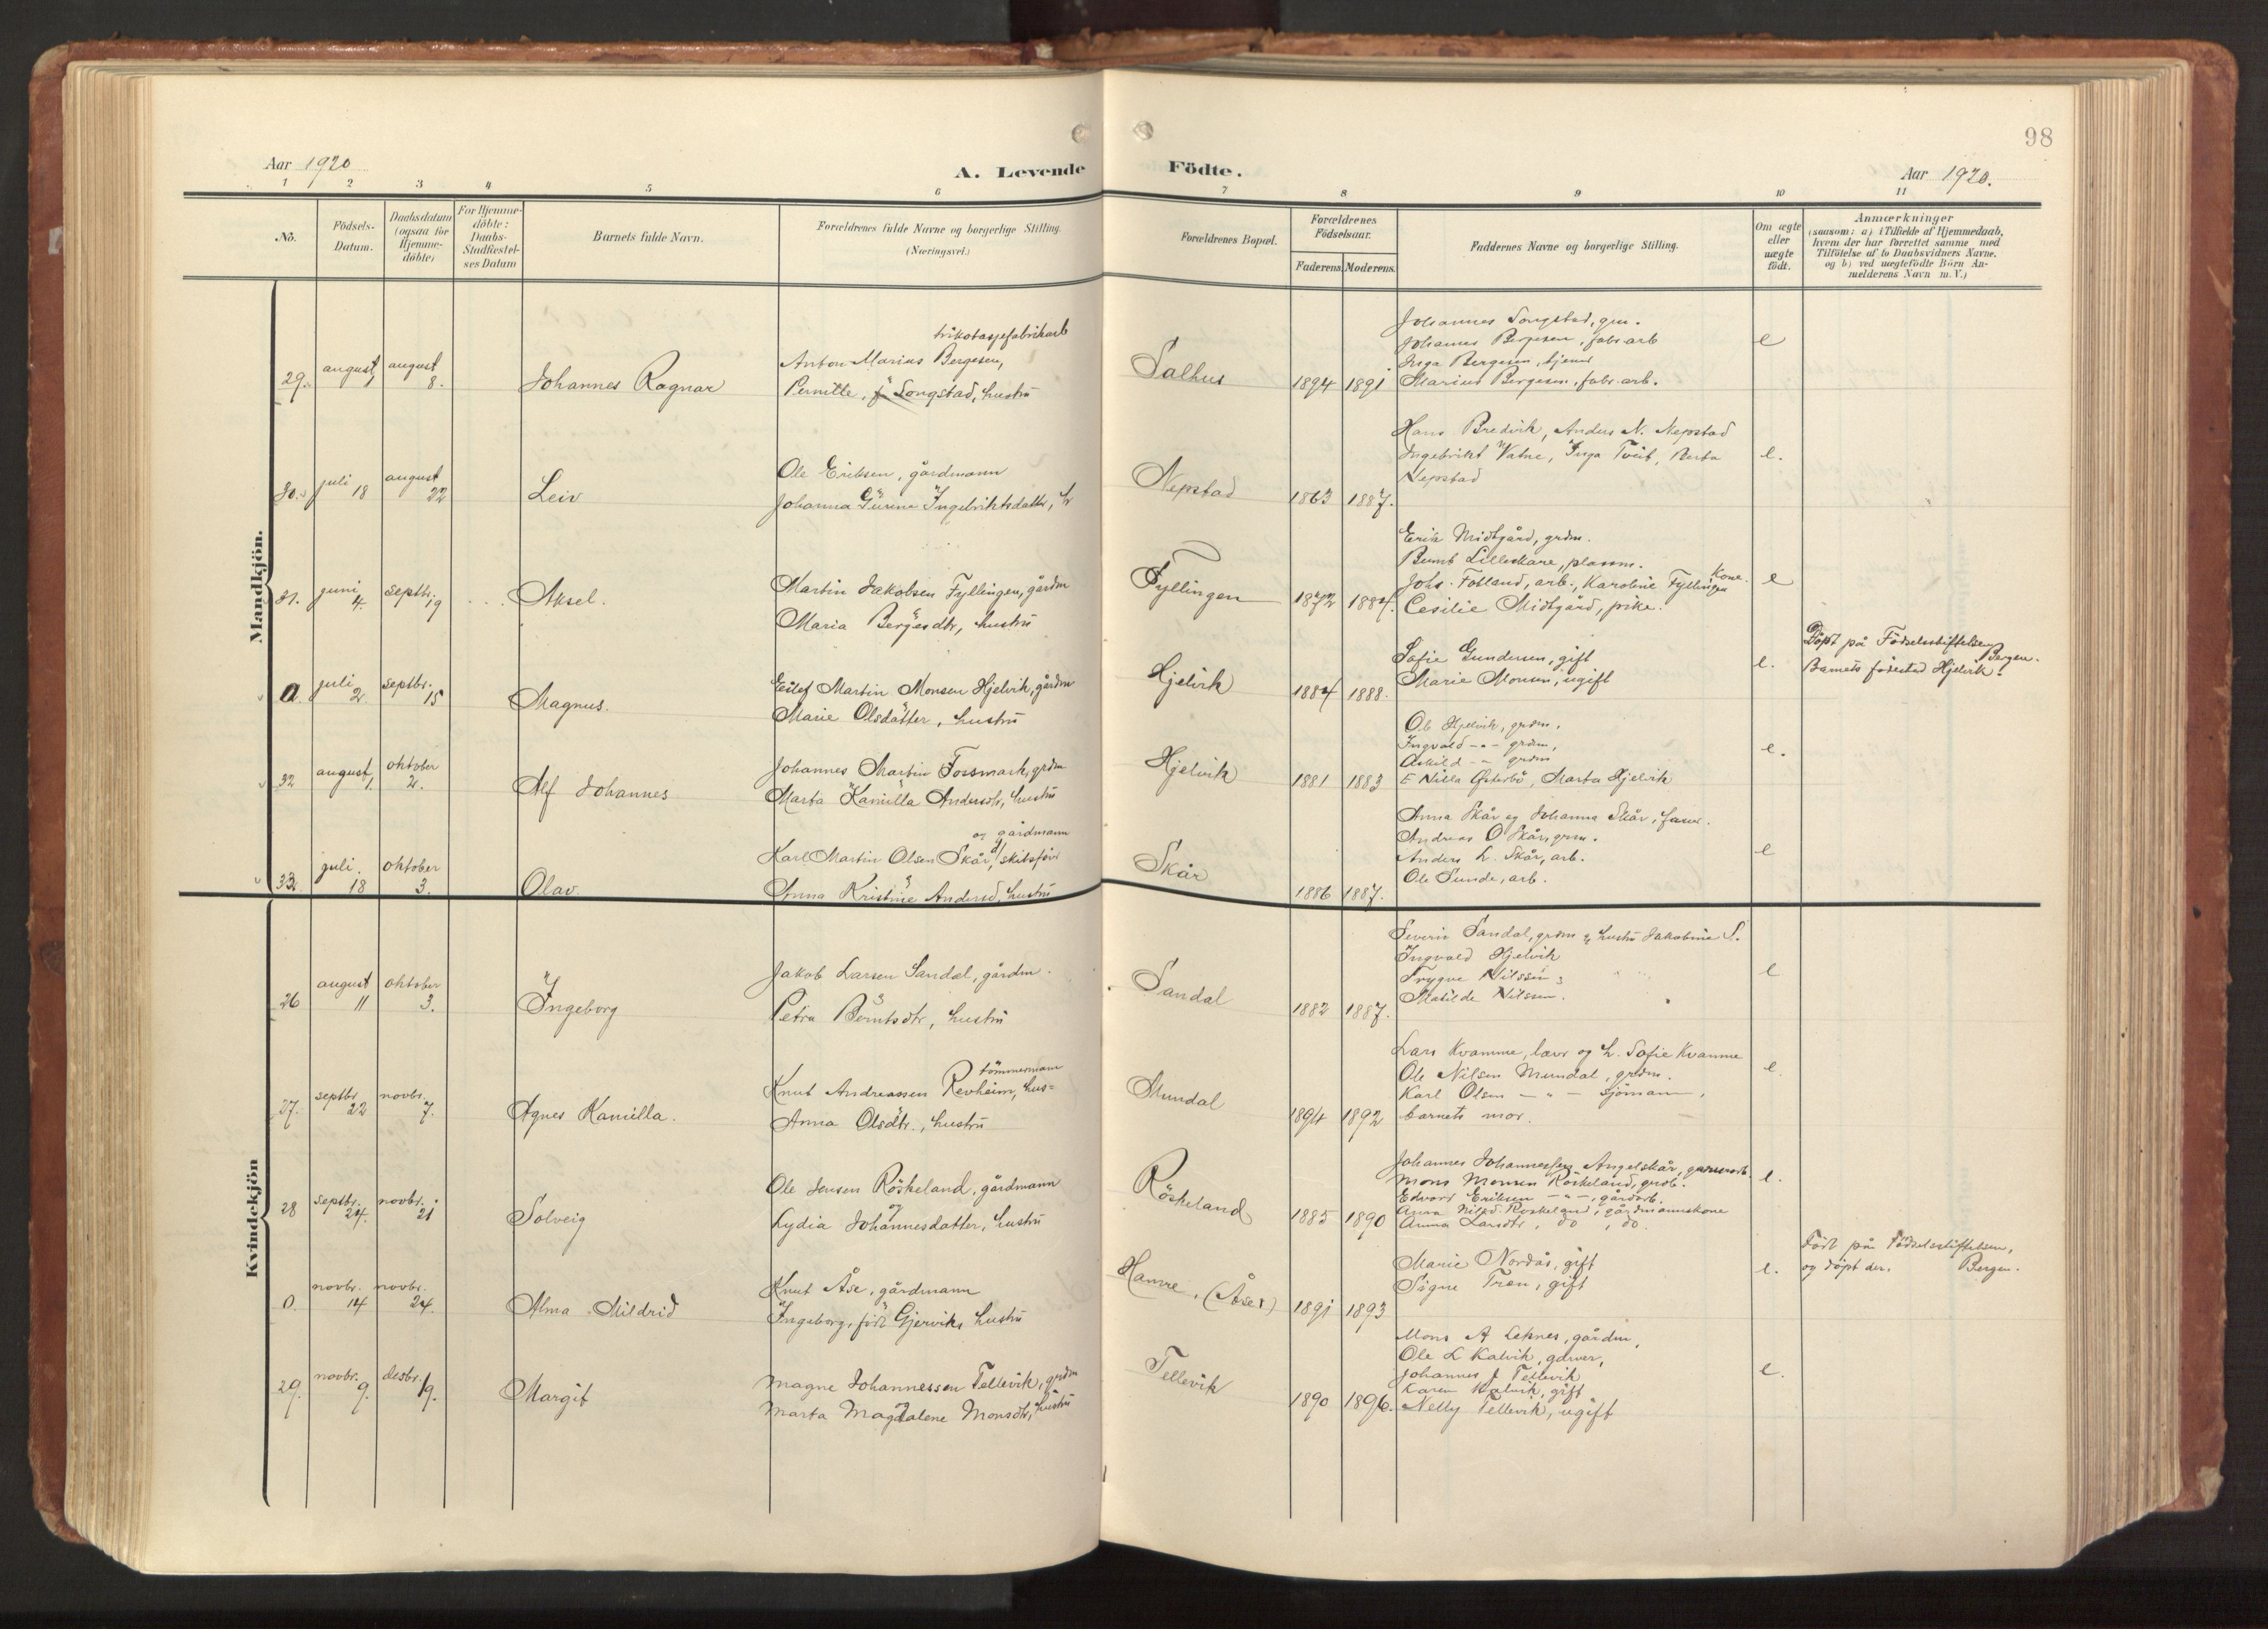 98
Aar 1920
A. Levende Födte.
Aar 1920.
1 2 3 4 5 6 7 8 9 10 11
No.
Födsels-
Datum.
Daabsdatum
(ogsaa for
Hjemme-
döbte)
For Hjemme-
döbte:
Daabs-
Stadfæstel-
ses Datum
Barnets fulde Navn.
Forældrenes fulde Navne og borgerlige Stilling.
(Næringsvei.)
Forældrenes Bopæl.
Forældrenes
Födselsaar.
Faderens.
Moderens.
Faddernes Navne og borgerlige Stilling.
Om ægte
eller
uægte
födt.
Anmærkninger
(saasom: a) i Tilfælde af Hjemmedaab,
hvem der har forrettet samme med
Tilföielse af to Daabsvidners Navne.
og b) ved uægtefödte Börn An-
melderens Navn m. V.)
Mandkjön.
29. august 1 august 8. Johannes Ragnar
trikotasjefabrikarb
Anton Marius Bergesen,
Pernille, f. Songstad, hustru
Salhus 1894 1891
Johannes Songstad, gm.
Johannes Bergesen, fabr arb
Inga Bergesen, tjener
Marius Bergesen, fabr. arb.
e
30. juli 18 august 22 Leiv
Ole Eriksen, gårdmann
Johanna Gurine Ingebriktsdatter, h
Nepstad 1863 1887.
Hans Bredvik, Anders N. Nepstad
Ingebrikt Vatne, Inga Tveit, Berta
Nepstad
e.
31. juni 4. septbr. 19 Aksel.
Martin Jakobsen Fyllingen, gårdm
Maria Bergesdtr, hustru
Fyllingen 1872 1884.
Erik Midtgård, grdm.
Bernt Lilleskare, plassm.
Johs. Fotland, arb., Karoline Fyllingen kone.
Cesilie Midtgård, pike.
e
0. juli 2. septbr. 15 Magnus.
Eilef Martin Monsen Hjelvik, gårdm
Marie Olsdatter, hustru
Hjelvik 1884 1888.
Sofie Gundersen, gift
Marie Monsen, ugift
e.
Döpt på Födselsstiftelsen Bergen.
Barnets födested Hjelvik.
32 august 1. oktober 2. Alf Johannes
Johannes Martin Fossmark, grdm
Marta Kamilla Andersdtr, hustru
Hjelvik 1881 1883
Ole Hjelvik, grdm.
Ingvald -"- grdm,
Askild -"- grdm
E Nilla Österbö, Marta Hjelvik
e.
33. juli 18 oktober 3. Olav
og gårdmann
Karl Martin Olsen Skår, skibsför
Anna Kristine Andersd, hustru
Skår 1886 1887.
Anna Skår og Johanna Skår,
Andreas O Skår, grm.
Anders L. Skår, arb.
Ole Sunde, arb.
e
Kvindekjön
26 august 11 oktober 3. Ingeborg
Jakob Larsen Sandal, gårdm.
Petra Berntsdtr, hustru
Sandal 1882 1887.
Severin Sandal, grdm & hustru Jakobine S.
Ingvald Hjelvik
Trygve Nilssen
Matilde Nilssen.
e
27. septbr 22 novbr. 7. Agnes Kamilla.
tömmermann
Knut Andreassen Revheim, hus=
Anna Olsdtr., hustru
Mundal 1894 1892
Lars Kvamme, lærer og h. Sofie Kvamme
Ole Nilsen Mundal, grdm.
Karl Olsen -"- sjömann,
barnets mor.
e.
28 septbr. 24. novbr. 21 Solveig
Ole Jensen Röskeland, gårdmann
og
Lydia Johannesdatter, hustru
Röskeland 1885 1890
Johannes Johannessen Angelskår,
Mons Monsen Röskeland, grdb.
Edvard Eriksen -"-, gårdarb.
Anna Nilsd. Roskeland, gårdmannskone
Anna Larsdtr, do, do.
e.
0. novbr. 14 novbr. 24. Alma Mildrid
Knut Åse, gårdmann
Ingeborg, född Gjervik, hustru
Hamre, (Åse) 1891 1893
Marie Nordås, gift
Signe Træn, gift
e.
Född på Födselsstiftelsen,
og döpt der. Bergen.
29. novbr. 9. desbr. 19. Margit
Magne Johannessen Tellevik, grdm
Marta Magdalene Monsdtr, hustru
Tellevik 1890 1896.
Mons A Leknes, gårdm,
Ole L Kalvik, garver,
Johannes J Tellevik
Karen Kalvik, gift
Nelly Tellevik, ugift
e.